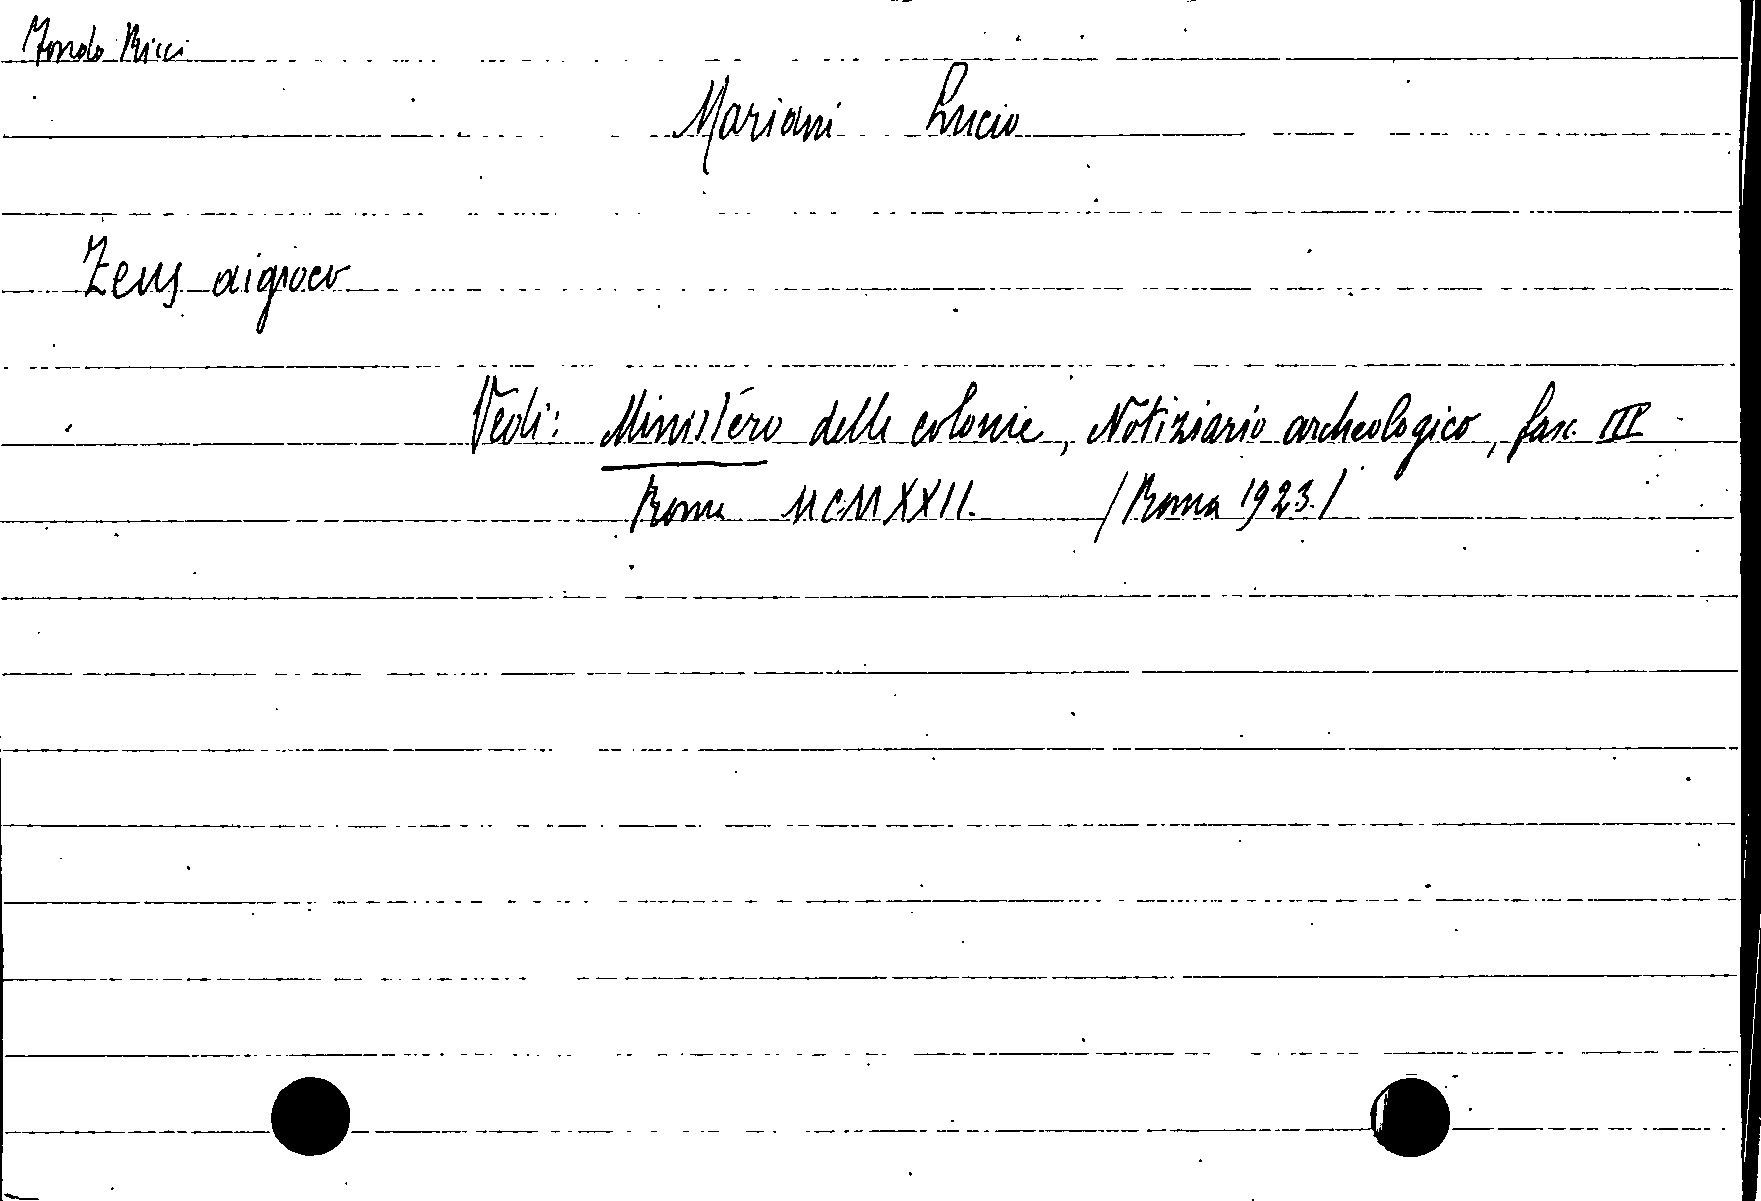 Fondo Ricci
Mariani Lucio
Zeus aigioco
Vedi: Ministero delle colonie, Notiziario archeologico, fasc. III
Roma MCMXXII. /Roma 1923./